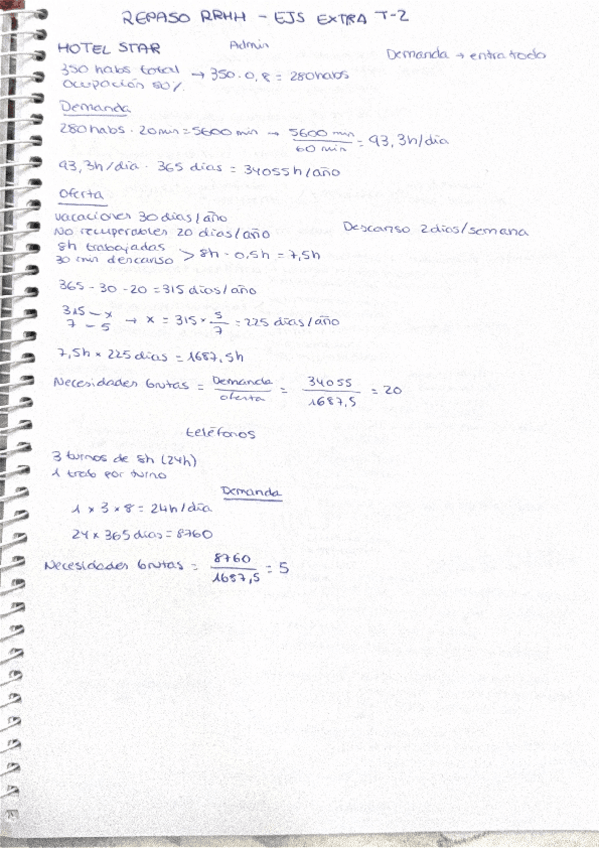 REPASO RRHH - EJS EXTRA T-2
HOTEL STAR Admin Demanda → entra todo
350 habs total → 350 · 0,8 = 280 habs
Ocupación 80%
Demanda
280 habs · 20 min = 5600 min → 5600 min / 60 min = 93,3h/día
93,3h/día · 365 días = 34055h/año
Oferta
vacaciones 30 días/año
No recuperables 20 días/año Descanso 2 días/semana
8h trabajadas
30 min descanso > 8h - 0,5h = 7,5h
365 - 30 - 20 = 315 días/año
315 - x
7 - 5 → x = 315 × 5/7 = 225 días/año
7,5h × 225 días = 1687,5h
Necesidades brutas = Demanda / oferta = 34055 / 1687,5 = 20
teléfonos
3 turnos de 8h (24h)
1 trab por turno
Demanda
1 × 3 × 8 = 24h/día
24 × 365 días = 8760
Necesidades brutas = 8760 / 1687,5 = 5